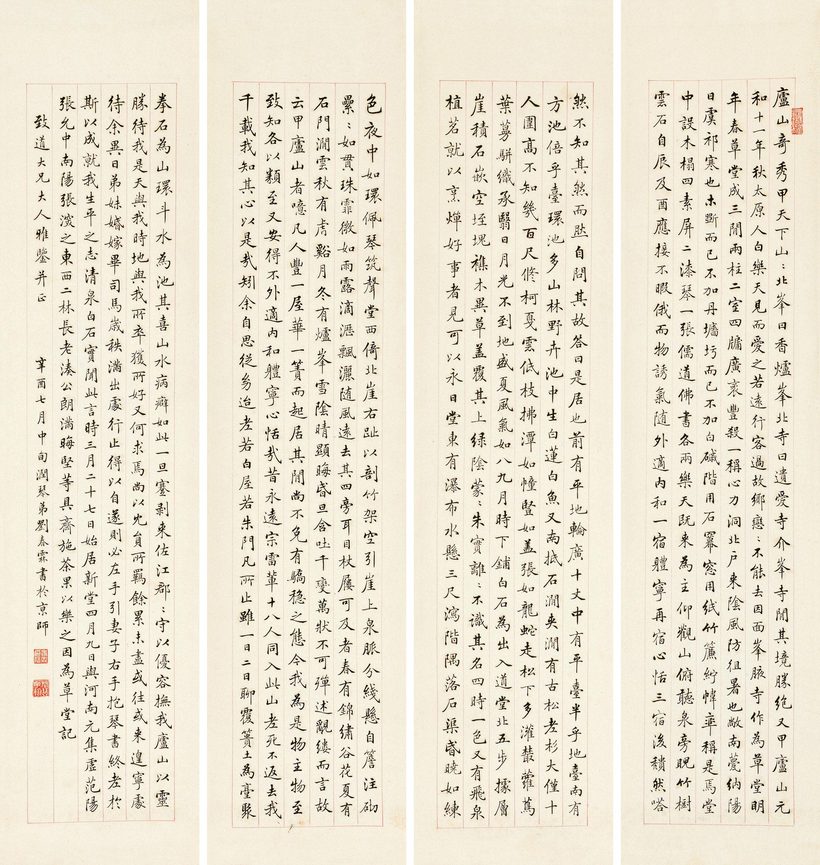 廬山奇秀甲天下山:北峯曰香爐峯北寺曰遺愛寺介峯寺間其境勝絶又甲廬山元
和十一年秋太原人白樂天見而愛之若遠行客過故鄉戀:不能去因面峯腋寺作為草堂明
年春草堂成三間兩柱二室四牖廣袤豐殺一稱心力洞北户來陰風防徂暑也敞南甍納陽
日虞祁寒也木斲而已不加丹墻圬而已不加白磩階用石冪窓用紙竹簾紵幃率稱是焉堂
中設木榻四素屏二漆琴一張儒道佛書各兩樂天既來為主仰觀山俯聽泉旁睨竹樹
雲石自辰及酉應接不暇俄而物誘氣隨外適内和一宿體寧再宿心恬三宿後頹然嗒
然不知其然而然自問其故答曰是居也前有平地輪廣十丈中有平臺半平地臺南有
方池倍乎臺環池多山林野卉池中生白蓮白魚又南抵石澗夾澗有古松老杉大僅十
人圍高不知幾百尺修柯戞雲低枝拂潭如幢豎如蓋張如龍蛇走松下多灌叢蘿蔦
葉蔓駢織承翳日月光不到地盛夏風氣如八九月時下鋪白石為出入道堂北五步據層
崖積石嵌空垤堄雜木異草蓋覆其上緑陰蒙:朱實離:不識其名四時一色又有飛泉
植茗就以烹燀好事者見可以永日堂東有瀑布水懸三尺瀉階隅落石渠昏曉如練
色夜中如環佩琴筑聲堂西倚北崖右趾以剖竹架空引崖上泉脈分綫懸自簷注砌
纍:如貫珠霏微如雨露滴瀝飄灑隨風遠去其四旁耳目杖屨可及者春有錦繡谷花夏有
石門澗雲秋有虎谿月冬有爐峯雪陰晴顯晦昏旦含吐千變萬狀不可殫述覼縷而言故
云甲廬山者噫凡人豐一屋華一簀而起居其間尚不免有驕穩之態今我為是物主物至
致知各以類至又安得不外適内和體寧心恬哉昔永遠宗雷輩十八人同入此山老死不返去我
千載我知其心以是哉矧余自思從幼迨老若白屋若朱門凡所止雖一日二日聊覆簣土為臺聚
拳石為山環斗水為池其喜山水病癖如此一旦蹇剥來佐江郡:守以優容撫我廬山以靈
勝待我是天與我時地與我所卒獲所好又何求焉尚以冗員所羈餘累未盡或往或來遑寧處
待余異日弟妹婚嫁畢司馬歲秩滿出處行止得以自遂則必左手引妻子右手抱琴書終老於
斯以成就我生平之志清泉白石實聞此言時三月二十七日始居新堂四月九日與河南元集虛范陽
張允中南陽張深之東西二林長老湊公朗滿晦堅等具齋施茶果以樂之因為草堂記
致道大兄大人雅鑒并正　辛酉七月中旬潤琴弟劉春霖書於京師